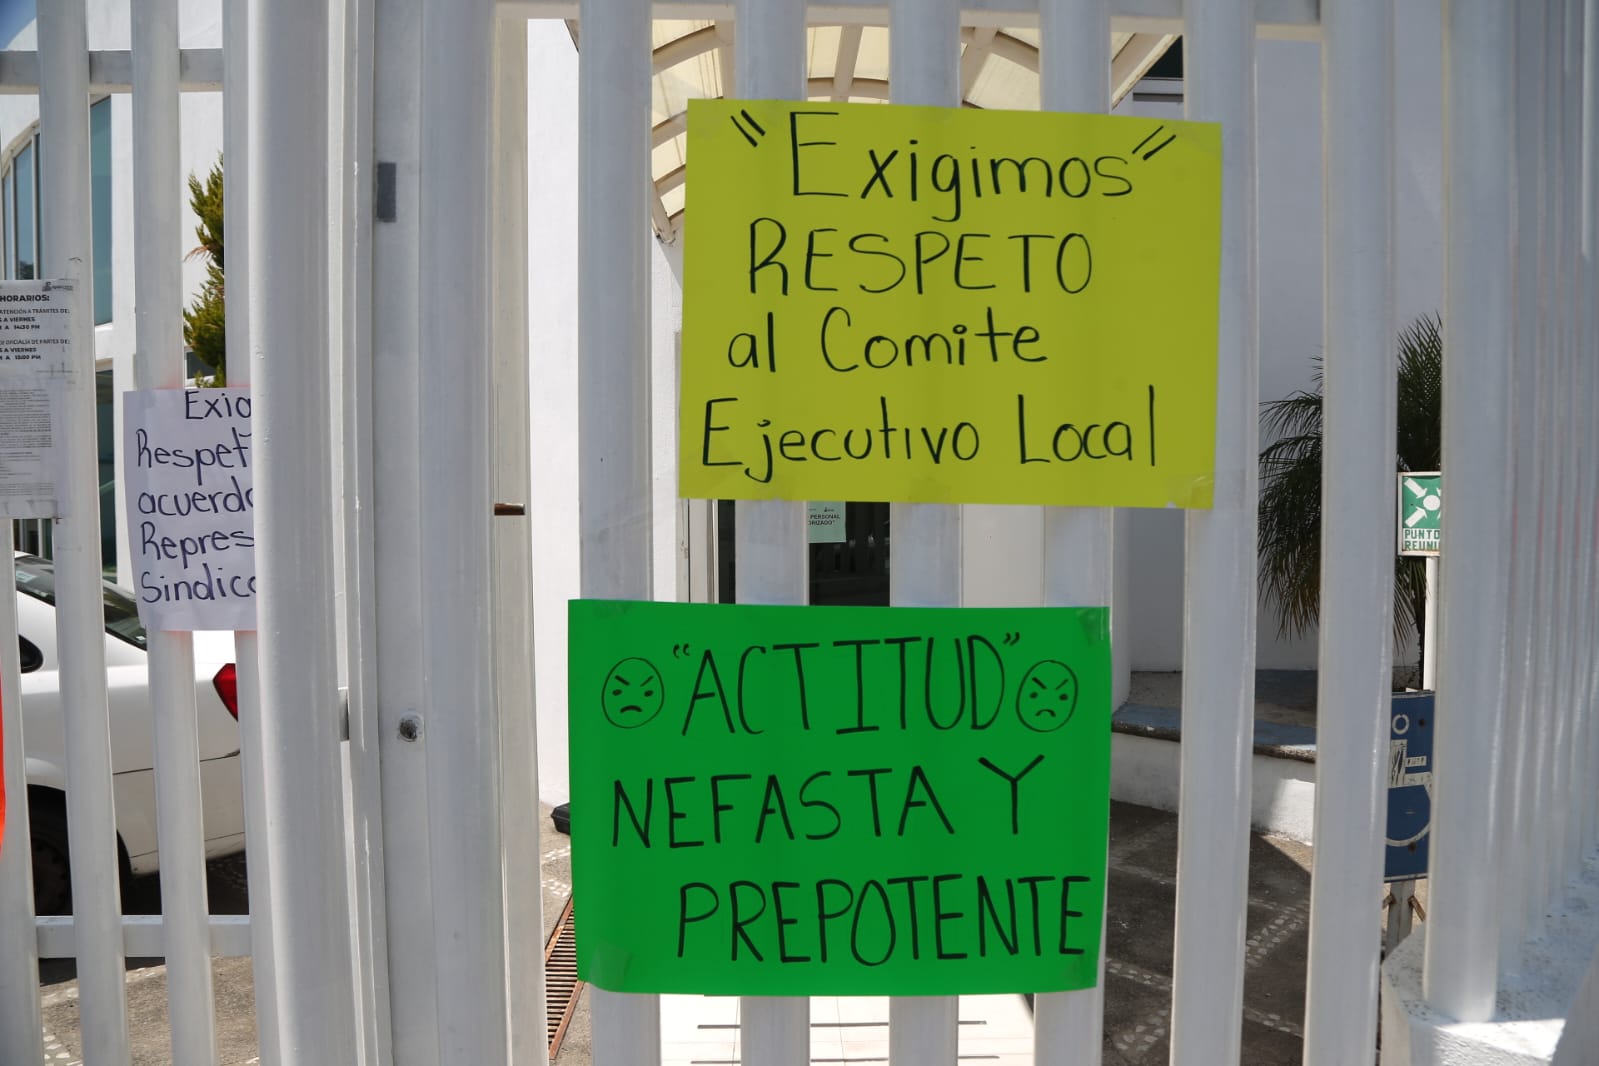 HORARIOS:
ATENCIÓN A TRÁMITES DE:
A VIERNES
A 14:30 PM
OFICIALÍA DE PARTES DE:
A VIERNES
A 15:00 PM
Exig
Respet
acuerdo
Repres
Sindica
"Exigimos"
RESPETO
al Comite
Ejecutivo Local
PERSONAL
"ACTITUD"
NEFASTA Y
PREPOTENTE
PUNTO
REUNI